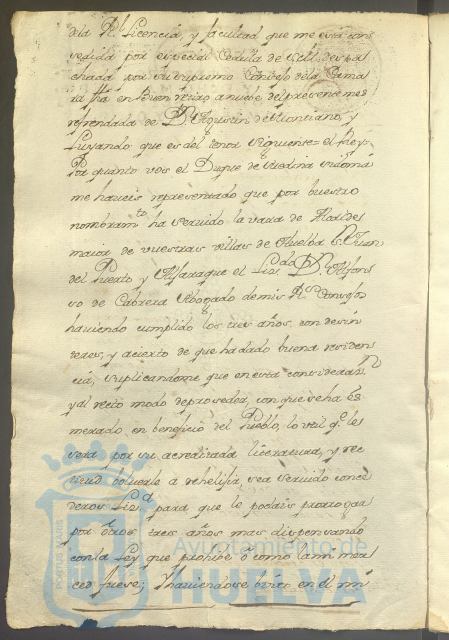 dela Rl Licencia, y facultad que me está con
zedida por especial Cedula de S.M. despa
chada por su supremo Consejo dela Cama
ra fha en Buen retiro a nuebe del presente mes
refrendada de Dn Agustin de Montiano, y
Luyando que es del tenor siguiente = el Rey =
Por quanto vos el Duque de Medina sidonia
me haveis representado que por buestro
nombramto ha servido la vara de Alcalde
maior de vuestras villas de Huelba Sn Juan
del Puerto y Aljaraque el Lizdo Dn Alfon
so de Cabrera Abogado de mis Rs Consejos
haviendo cumplido los tres años, con desin
teres, y acierto de que ha dado buena residen
cia, suplicandome que en esta considerazn
y al recto modo de proseder, con que se ha es
merado en beneficio del Pueblo, lo util qe les
sera por su acreditada literatura, y rec
titud bolverle a rehelijir, sea servido conce
deros Lizd para que le podais prorrogar
por otros tres años mas dispensando
con la Ley que prohibe ó como la mi mer
ced fuese; Y haviendose bisto en el mi
Ayuntamiento de
HUELVA
PORTUS MARIS